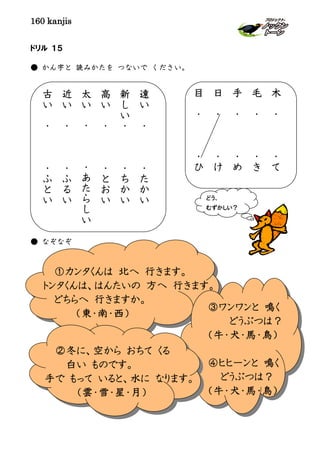 160 kanjis
プロジェクト
ノックント－ン
ドリル 15
● かん字と 読みかたを つないで ください。
遠い 新しい 高い 太い 近い 古い
たかい ちかい とおい あたらしい ふるい ふとい
木 毛 手 日 目
て き め け ひ
どう、
むずかしい？
● なぞなぞ
①カンタくんは 北へ 行きます。
トンタくんは、はんたいの 方へ 行きます。
どちらへ 行きますか。
（東・南・西）
②冬に、空から おちて くる
白い ものです。
手で もって いると、水に なります。
（雲・雪・星・月）
③ワンワンと 鳴く
どうぶつは？
（牛・犬・馬・島）
④ヒヒーンと 鳴く
どうぶつは？
（牛・犬・馬・島）